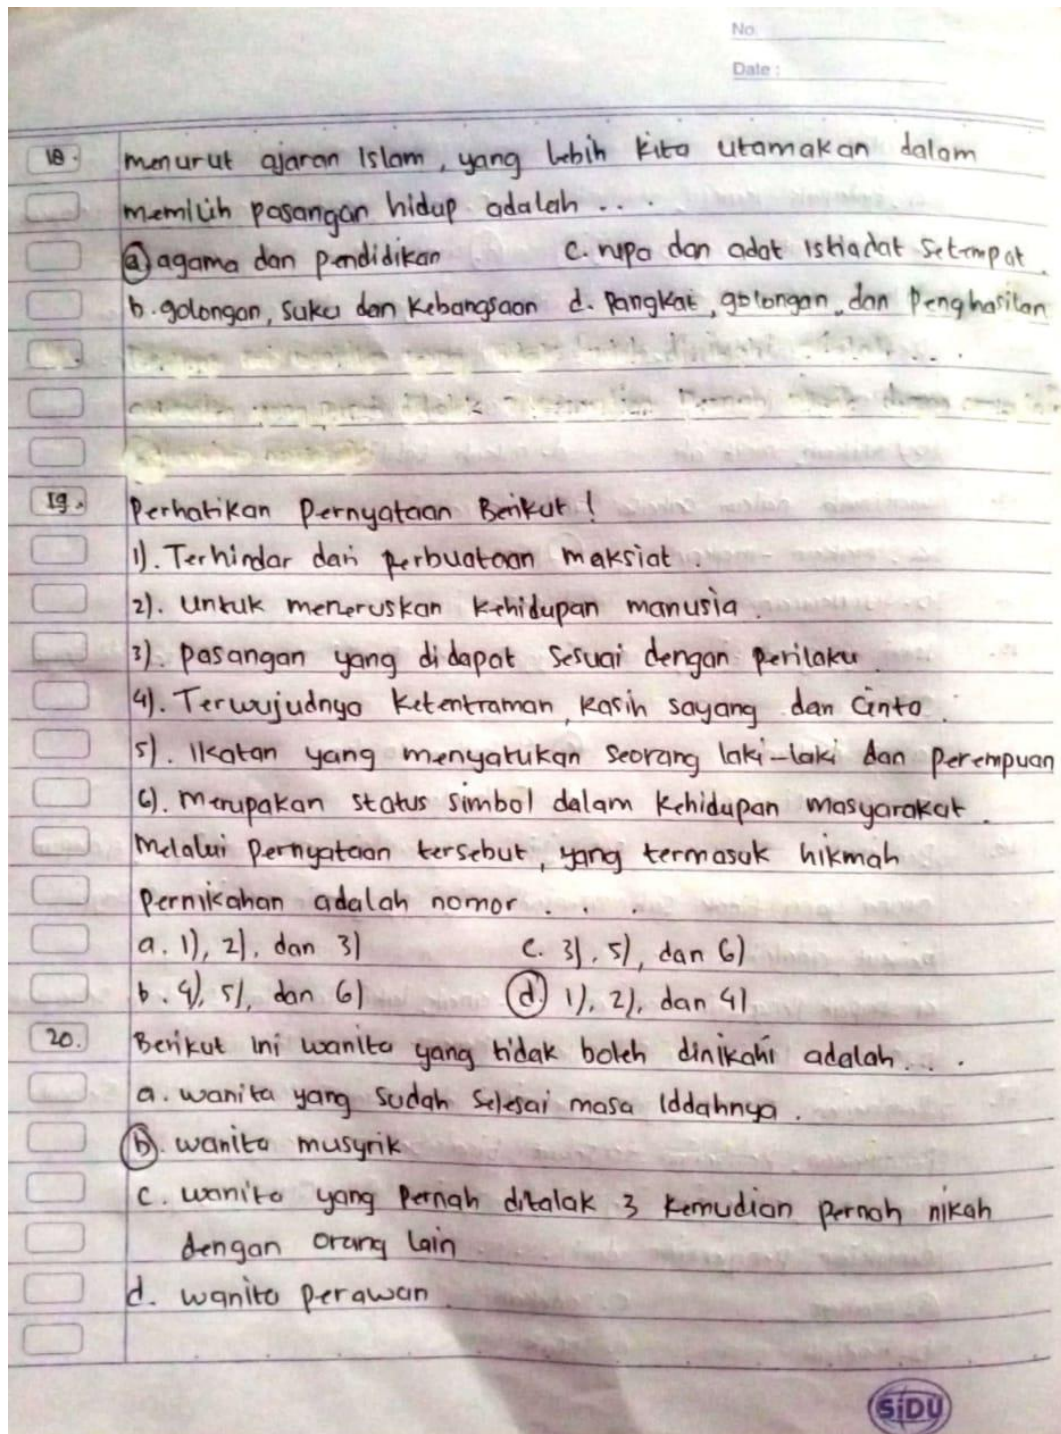 No.
Date :
18. menurut ajaran Islam, yang lebih kita utamakan dalam
memilih pasangan hidup adalah . . .
a. agama dan pendidikan c. rupa dan adat istiadat setempat.
b. golongan, suku dan kebangsaan d. pangkat, golongan, dan penghasilan
19. Perhatikan Pernyataan Berikut !
1). Terhindar dari perbuataan maksiat.
2). Untuk meneruskan kehidupan manusia.
3). pasangan yang didapat sesuai dengan perilaku.
4). Terwujudnya ketentraman, kasih sayang dan cinta.
5). Ikatan yang menyatukan seorang laki-laki dan perempuan
6). merupakan status simbol dalam kehidupan masyarakat.
melalui pernyataan tersebut, yang termasuk hikmah
pernikahan adalah nomor . . .
a. 1), 2), dan 3) c. 3), 5), dan 6)
b. 4), 5), dan 6) d. 1), 2), dan 4)
20. Berikut ini wanita yang tidak boleh dinikahi adalah . . .
a. wanita yang sudah selesai masa Iddahnya.
b. wanita musyrik
c. wanita yang pernah ditalak 3 kemudian pernah nikah
dengan orang lain
d. wanita perawan.
SiDU